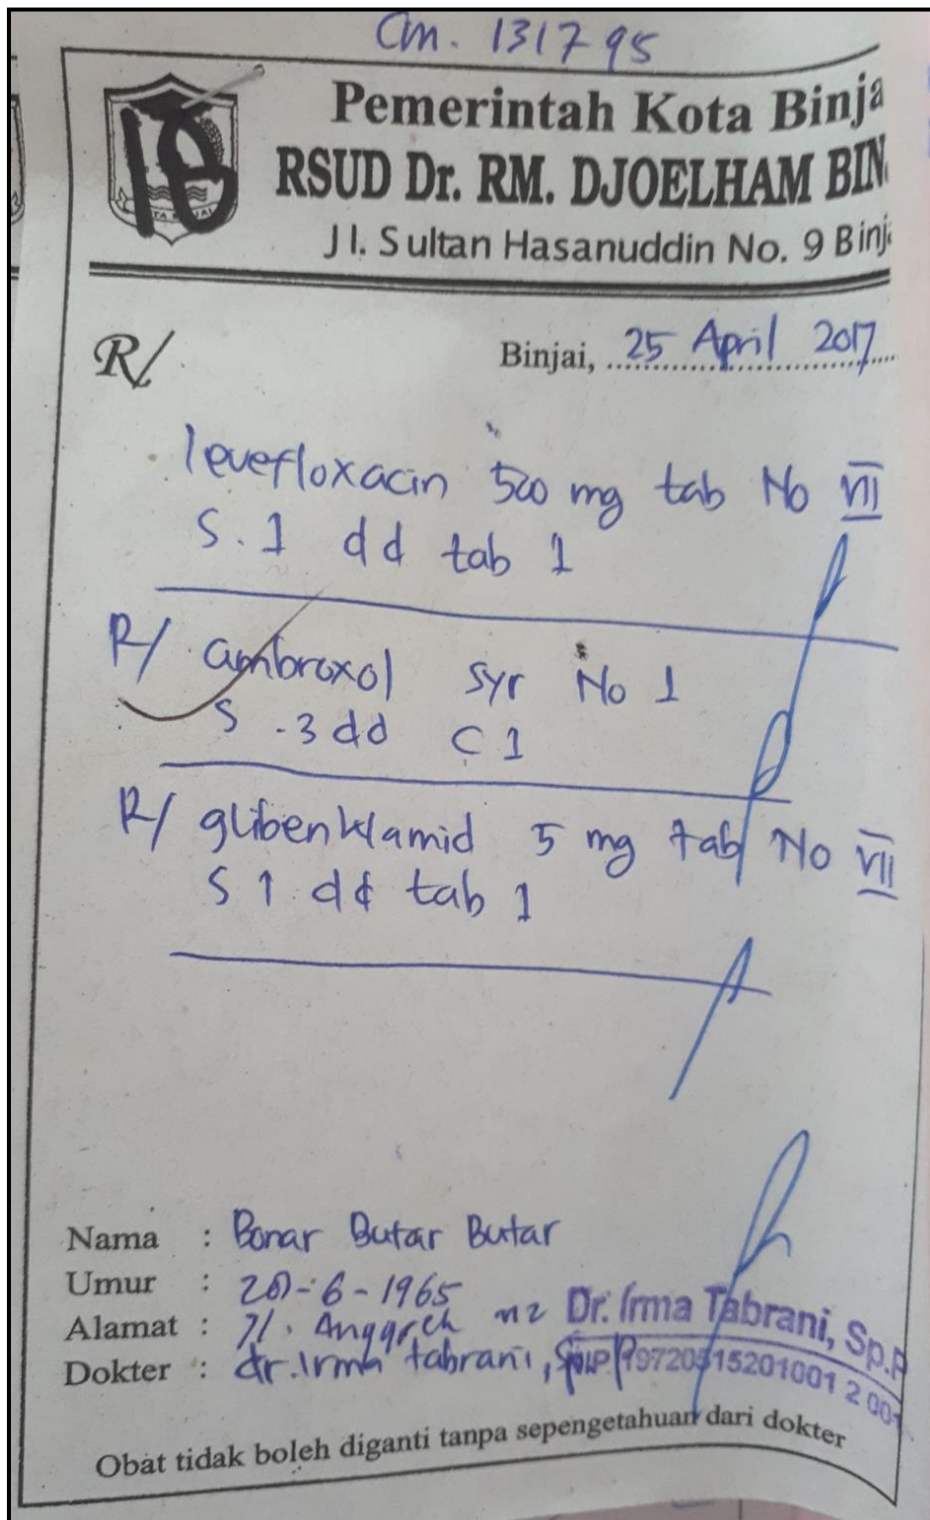 Cm. 131795
18
Pemerintah Kota Binja
RSUD Dr. RM. DJOELHAM BIN
Jl. Sultan Hasanuddin No. 9 Binj
R/ Binjai, 25 April 2017
levefloxacin 500 mg tab No VII
S. 1 dd tab 1
R/ ambroxol syr No 1
S. 3 dd C 1
R/ glibenklamid 5 mg tab No VII
S 1 dd tab 1
Nama : Bonar Butar Butar
Umur : 20-6-1965
Alamat : Jl. Anggrek
Dokter : dr. Irma tabrani, Sp.P
Dr. Irma Tabrani, Sp.P
Obat tidak boleh diganti tanpa sepengetahuan dari dokter